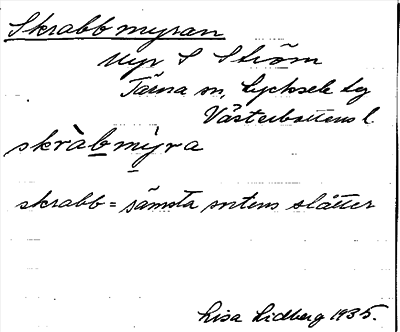 Skrabbmyran
Myr S Ström
Tärna sn, Lycksele lg
Västerbottens l.
skràbmỳra
skrabb = sämsta sortens slåtter
Lisa Lidberg 1935.